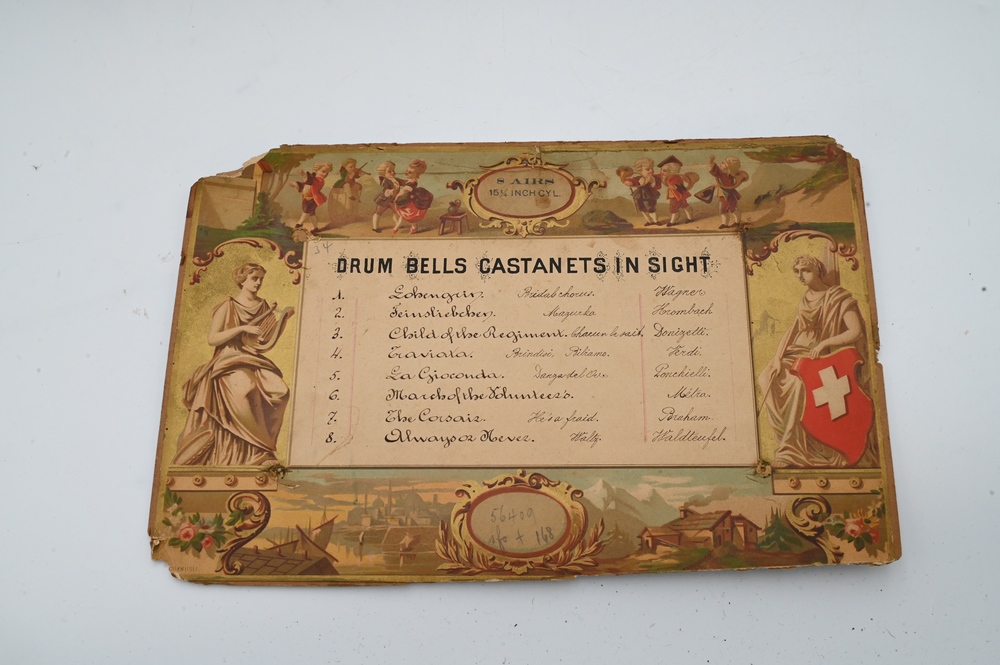 8 AIRS
15¼ INCH CYL.
54
DRUM BELLS CASTANETS IN SIGHT
1. Lohengrin. Bridal chorus. Wagner
2. Feinsliebchen. Mazurka. Hrombach
3. Child of the Regiment. Chacun le sait. Donizetti.
4. Traviata. Brindisi, Biliamo. Verdi.
5. La Gioconda. Danza del Ore Ponchielli.
6. March of the Volunteers. Métra.
7. The Corsair. He's a fraid. Braham.
8. Always or Never. Waltz. Waldteufel.
56409
168